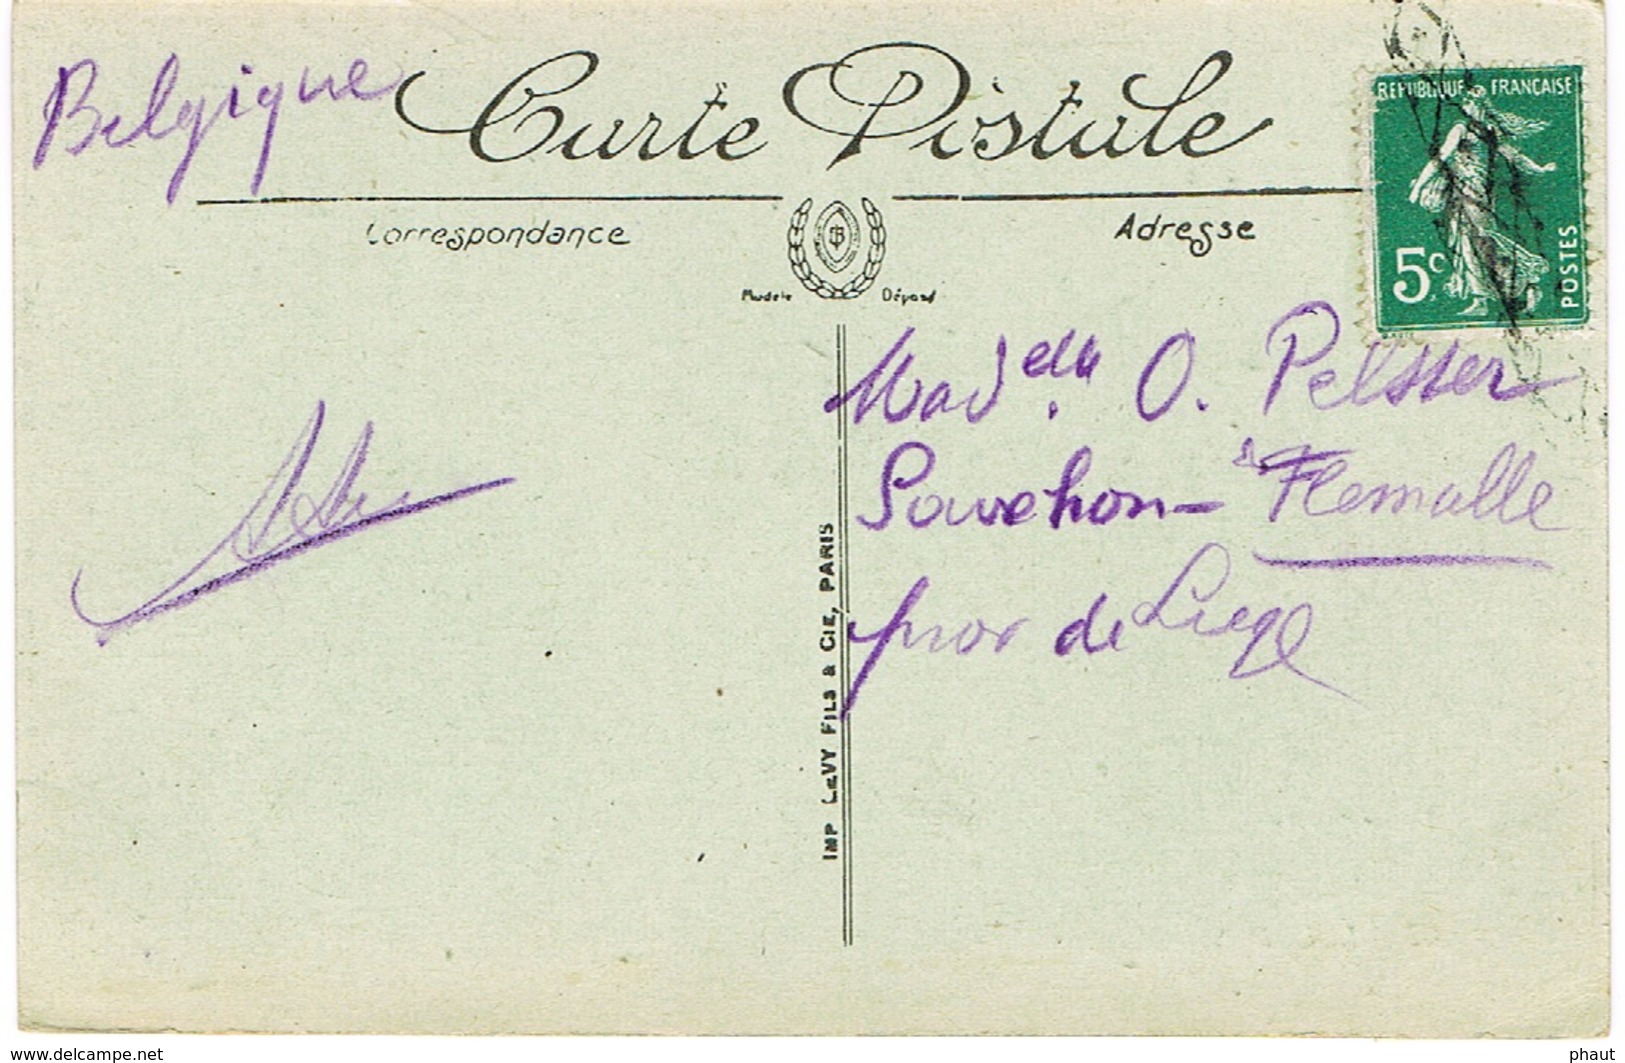 Belgique
Carte Postale
RÉPUBLIQUE FRANÇAISE
5c
POSTES
Correspondance
Adresse
Modele Déposé
Mad elle. O. Pelsser
Souvehon - à Flemalle
près de Liege
IMP LEVY FILS & CIE, PARIS
www.delcampe.net
phaut